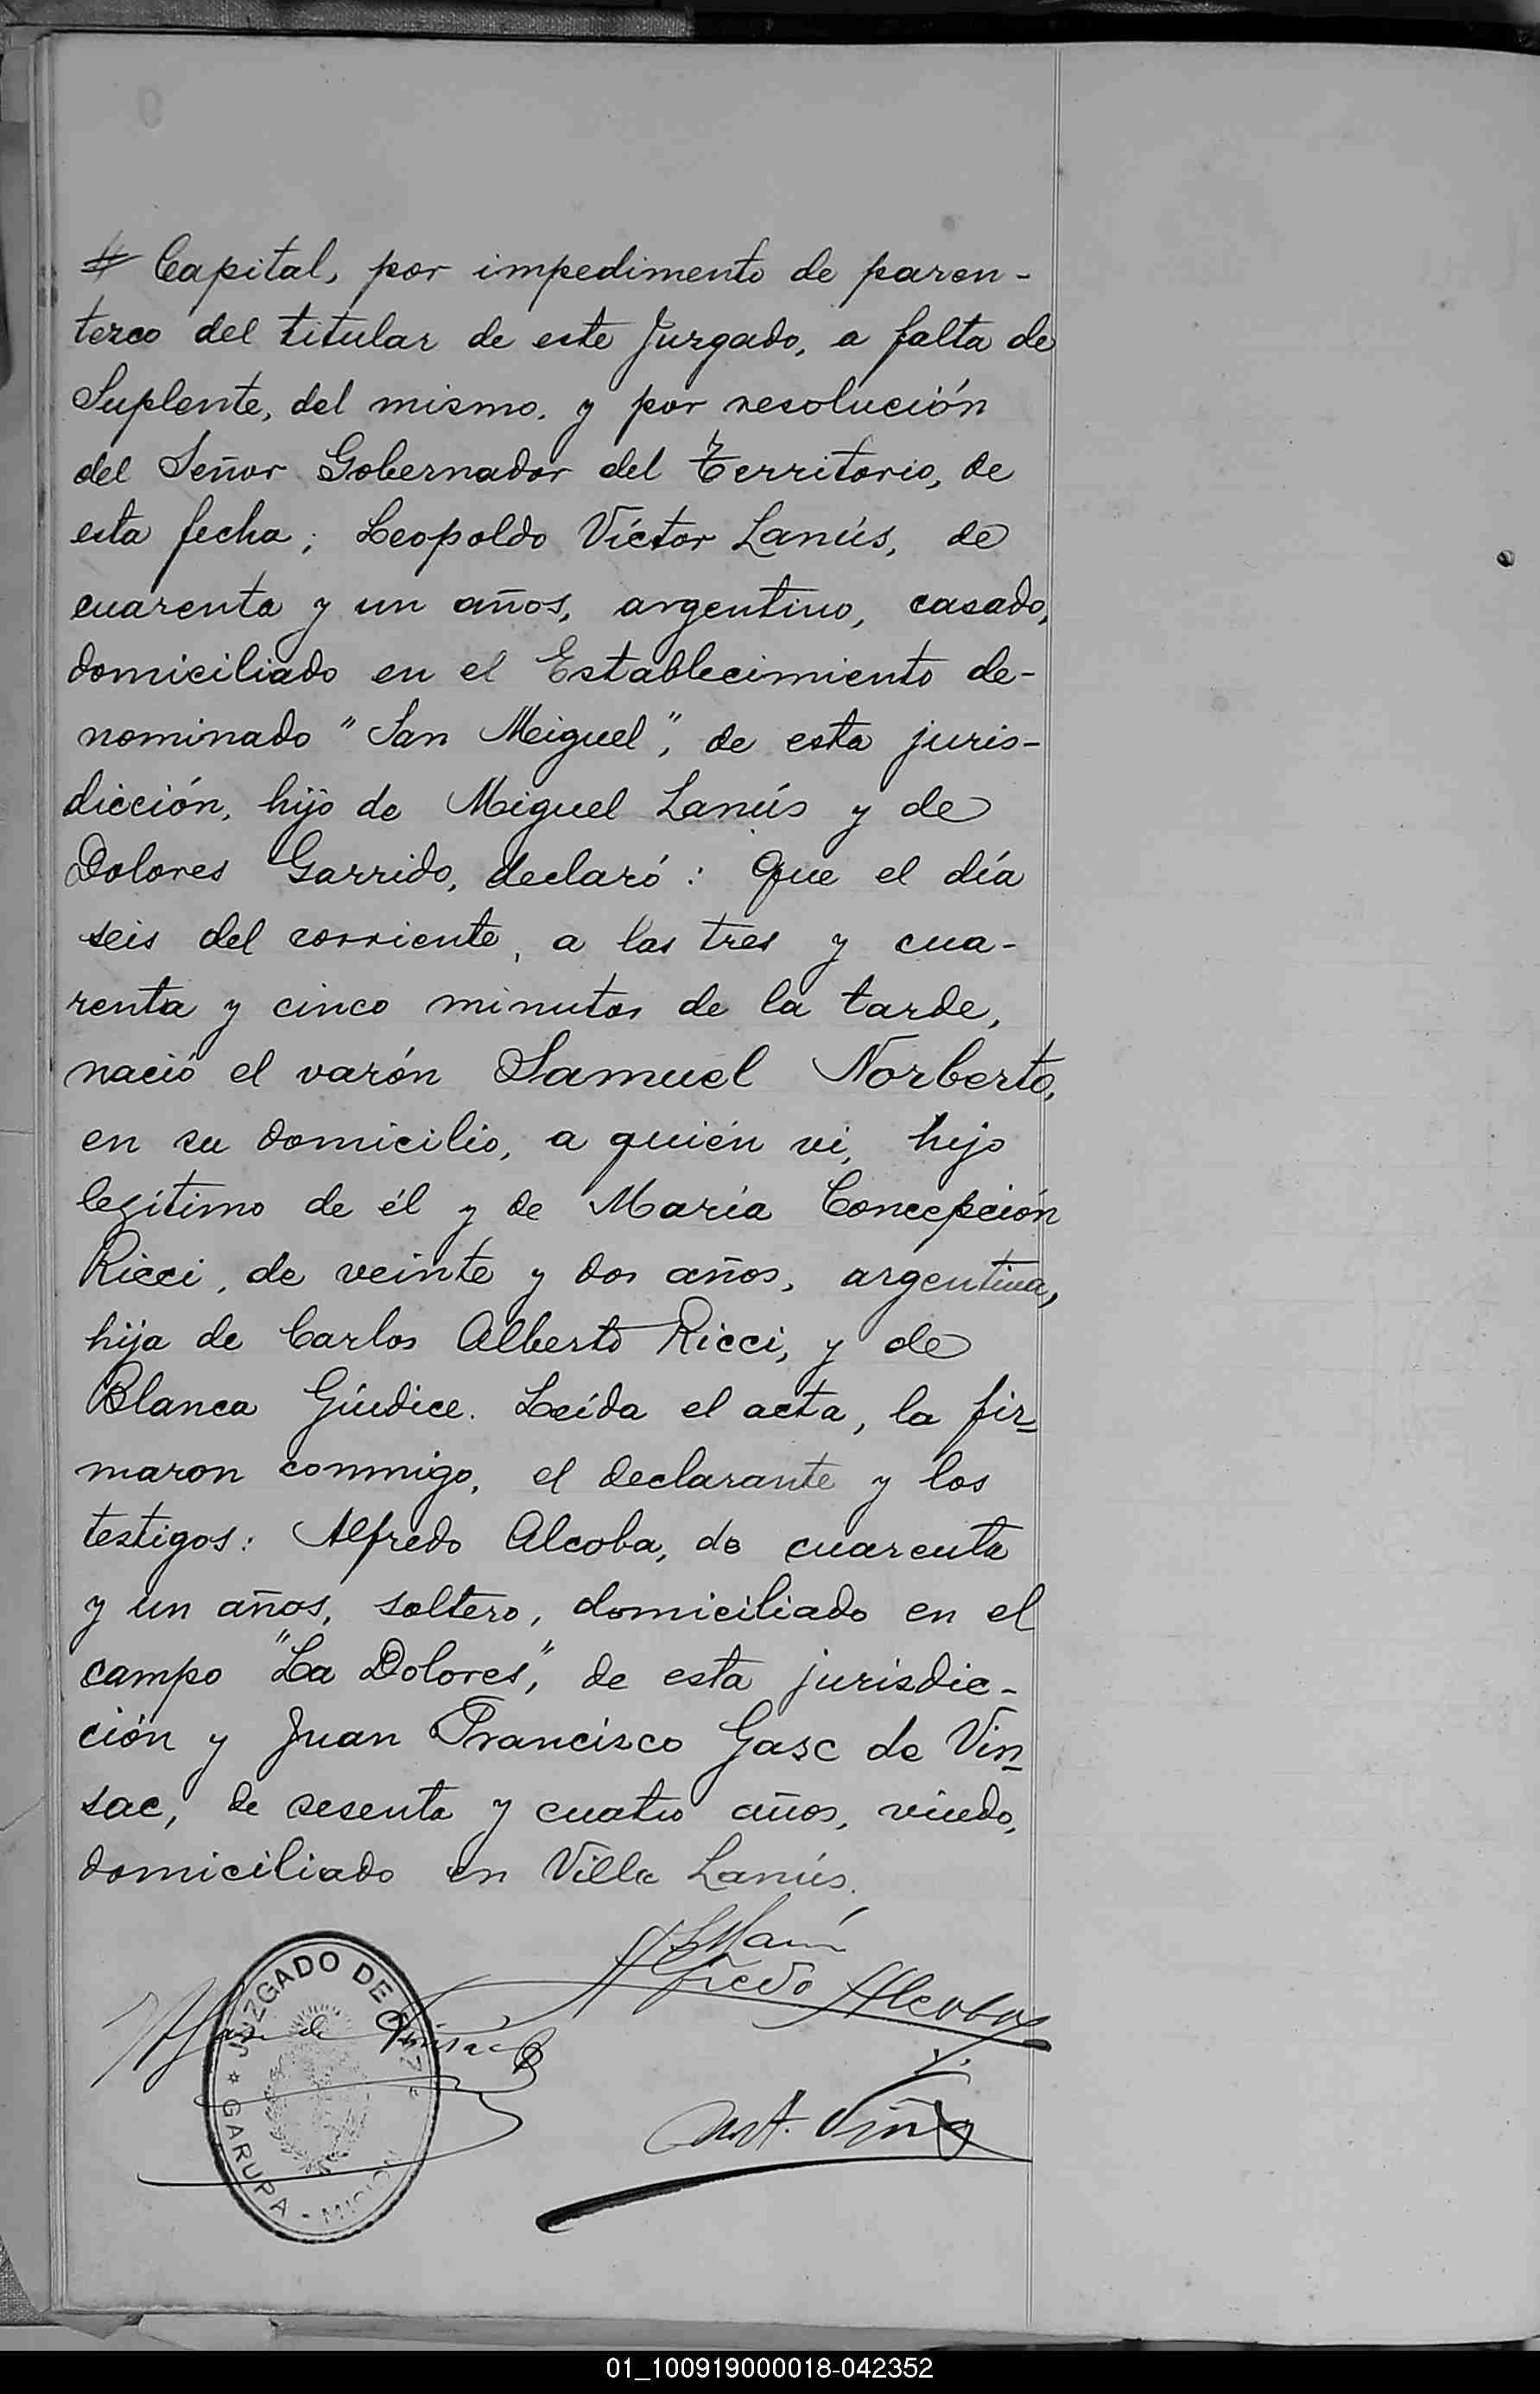 # Capital, por impedimento de paren-
tezco del titular de este Juzgado, a falta de
Suplente, del mismo, y por resolución
del Señor Gobernador del Territorio, de
esta fecha; Leopoldo Víctor Lanús, de
cuarenta y un años, argentino, casado,
domiciliado en el Establecimiento de-
nominado "San Miguel", de esta juris-
dicción, hijo de Miguel Lanús y de
Dolores Garrido, declaró: Que el día
seis del corriente, a las tres y cua-
renta y cinco minutos de la tarde,
nació el varón Samuel Norberto,
en su domicilio, a quién vi, hijo
legítimo de él y de María Concepción
Ricci, de veinte y dos años, argentina,
hija de Carlos Alberto Ricci, y de
Blanca Giúdice. Leída el acta, la fir-
maron conmigo, el declarante y los
testigos: Alfredo Alcoba, de cuarenta
y un años, soltero, domiciliado en el
campo "La Dolores", de esta jurisdic-
ción y Juan Francisco Gasc de Vin-
sac, de sesenta y cuatro años, viudo,
domiciliado en Villa Lanús.
Alfredo Alcoba
JUZGADO DE PAZ
GARUPA - MISIONES
01_100919000018-042352